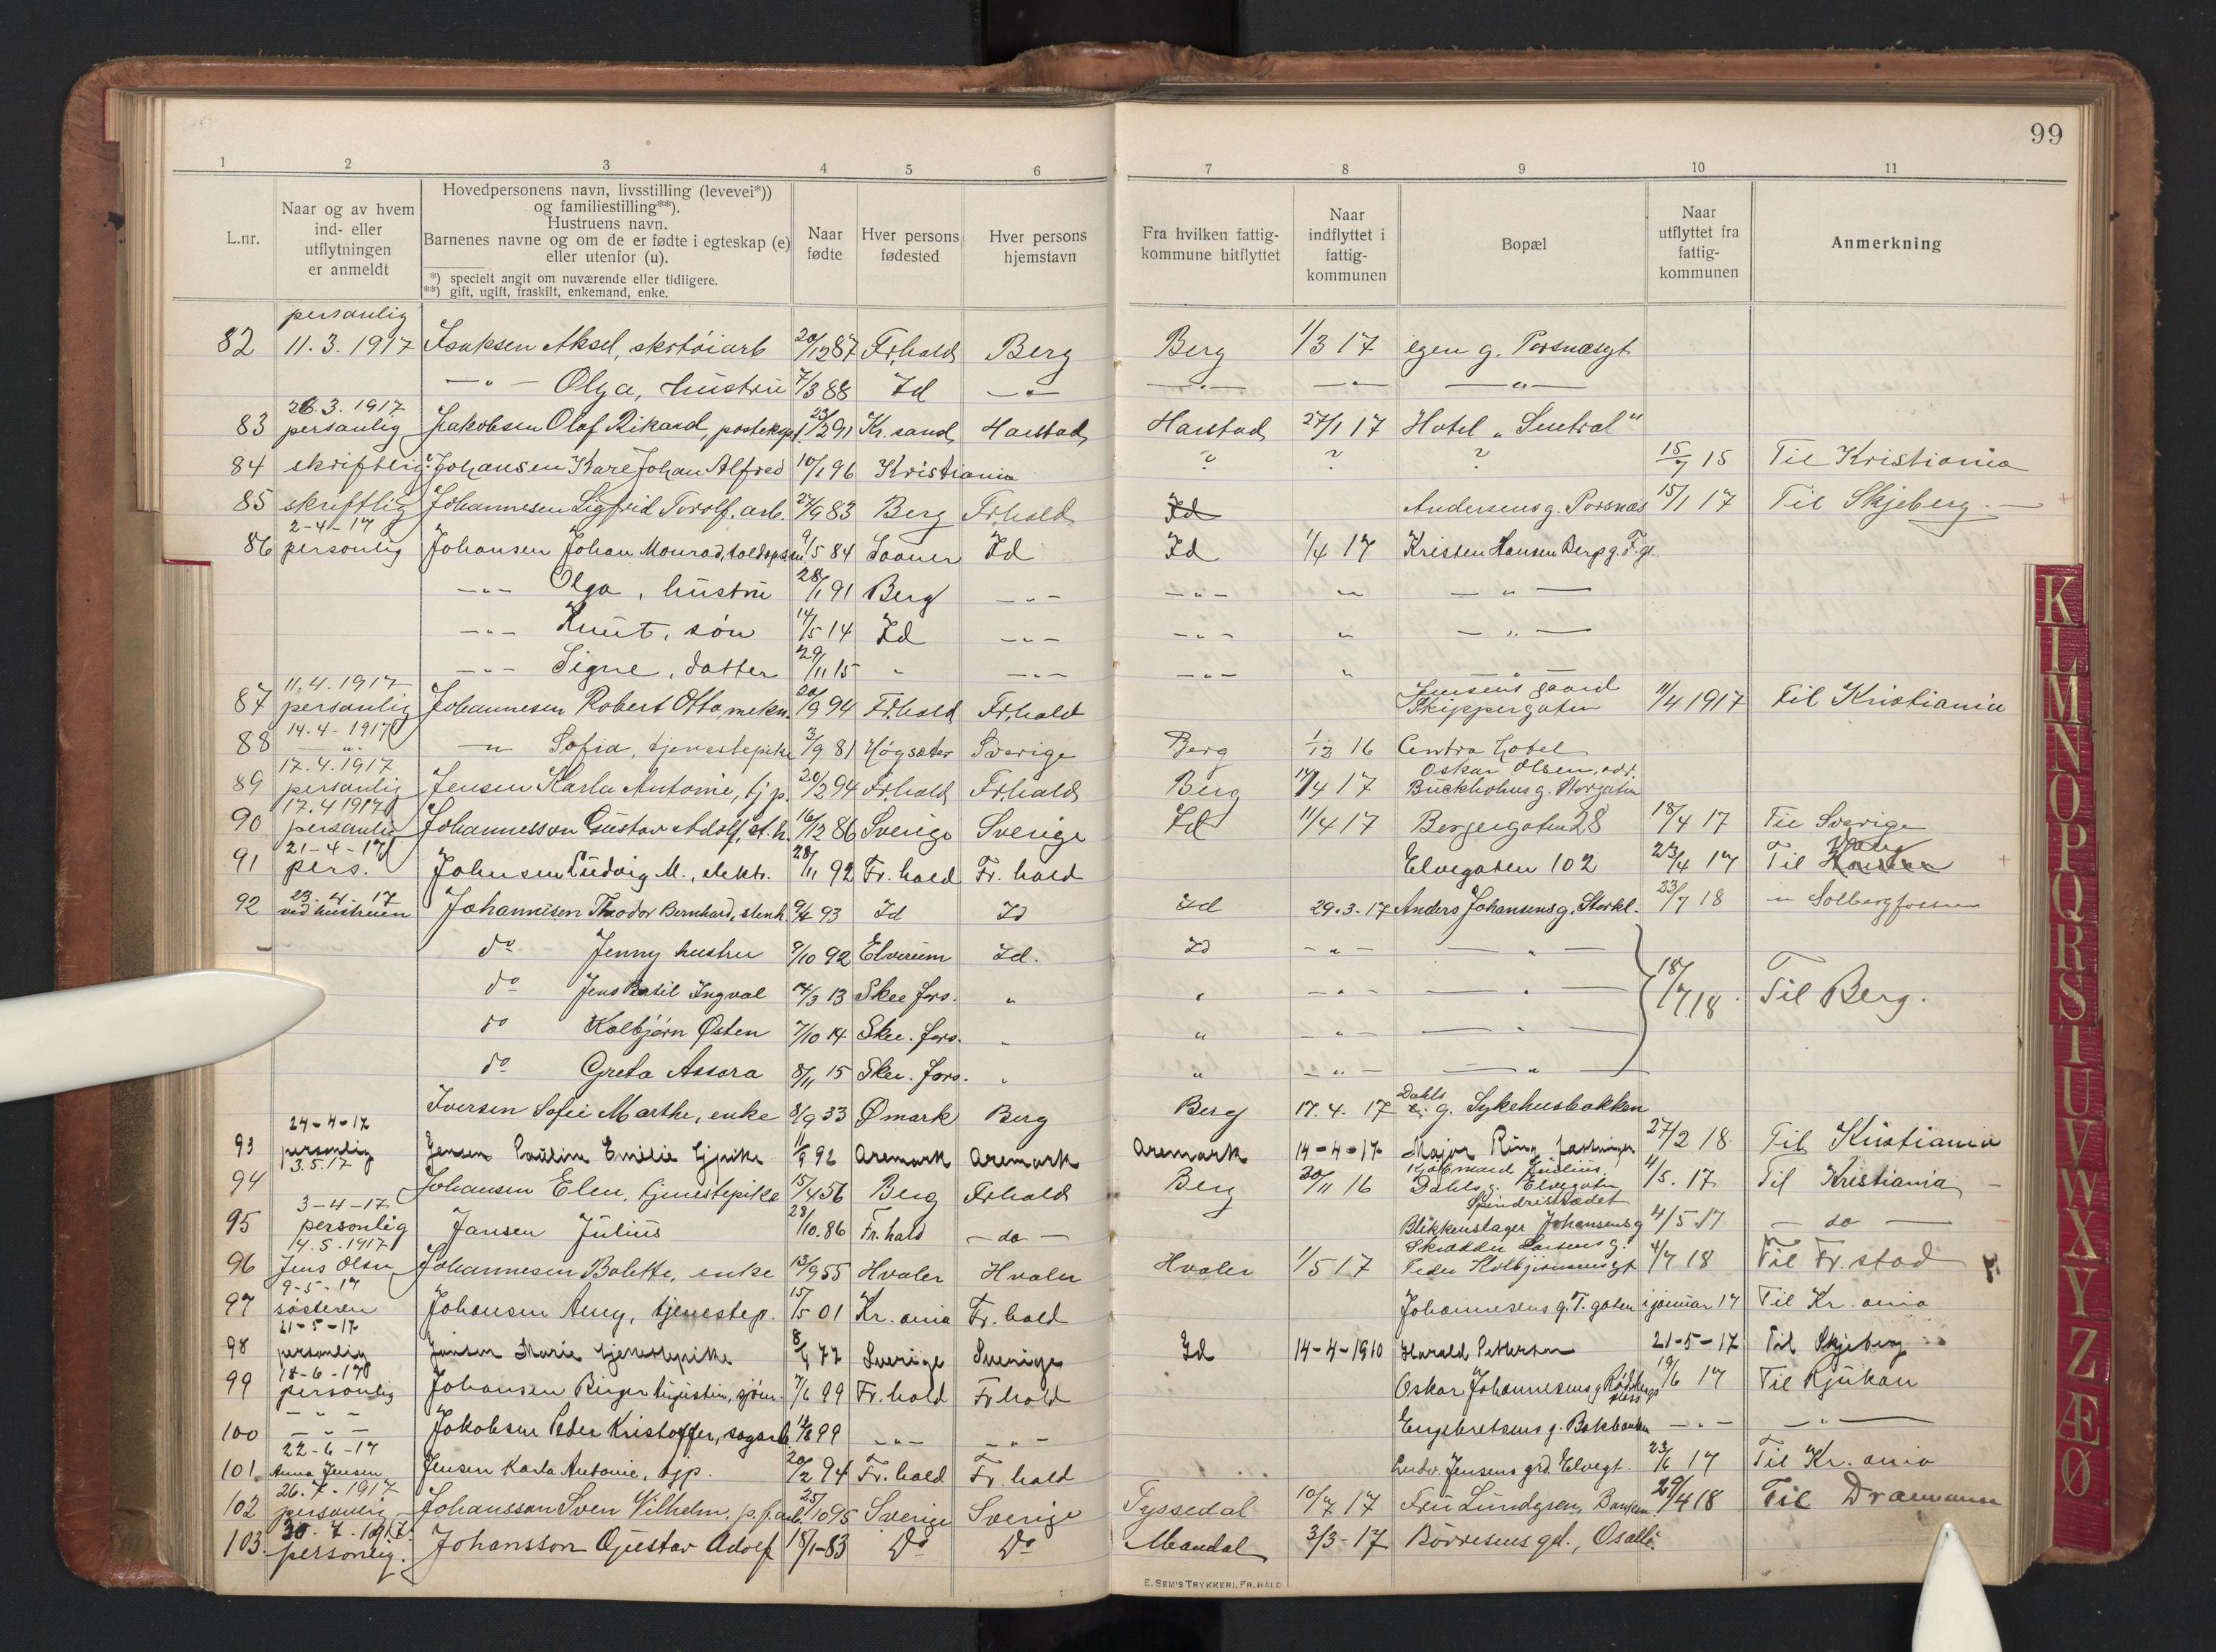 99
1 2 3 4 5 6 7 8 9 10 11
L.nr.
Naar og av hvem
ind- eller
utflytningen
er anmeldt
Hovedpersonens navn, livsstilling (levevei*))
og familiestilling**).
Hustruens navn.
Barnenes navne og om de er fødte i egteskap (e)
eller utenfor (u).
*) specielt angit om nuværende eller tidligere.
**) gift, ugift, fraskilt, enkemand, enke.
Naar
fødte
Hver persons
fødested
Hver persons
hjemstavn
Fra hvilken fattig-
kommune hitflyttet
Naar
indflyttet i
fattig-
kommunen
Bopæl
Naar
utflyttet fra
fattig-
kommunen
Anmerkning
personlig
82 11.3.1917 Isaksen Aksel, skotøiarb 20/12 87 Fr.hald Berg Berg 1/3 17 egen g. Porsnæsgt
—"— Olga, hustru 7/3 88 Id —"— —"— —"— —"—
26.3.1917
83 personlig Jakobsen Olaf Rikard, posteksp. 23/12 91 Kr.sand Harstad Harstad 27/1 17 Hotel „Sentral"
84 skriftlig Johansen Kare Johan Alfred 10/1 96 Kristiania ? ? ? 15/7 15 Til Kristiania
85 skriftlig Johannesen Sigfrid Torolf. arb. 27/9 83 Berg Fr.hald Id Andersens g. Porsnæs 15/1 17 Til Skjeberg.
2-4-17
86 personlig Johansen Johan Monrad, toldopsm 9/5 84 Id Id 1/4 17 Kristen Hansen Bergs g. T.gt.
—"— Olga, hustru 28/1 91 Berg —"— —"— " —"—
—"— Knut, søn 14/5 14 Id —"— —"— " —"—
—"— Signe, datter 29/11 15 " —"— —"— " —"—
11.4.1917 Jensens gaard
87 personlig Johannesen Robert Otto, mekn. 20/9 94 Fr.hald Fr.hald Skippergaten 11/4 1917 Til Kristiania
14.4-1917
88 —"— —"— Sofia, tjenestepike 3/9 81 Høgsæter Sverige Berg 1/12 16 Centra hotel
17.4.1917 Oskar Olsen,
89 personlig Jensen Karla Antonie, tjp. 20/2 94 Fr.hald Fr.hald Berg 14/4 17 Buckholms g. Storgaten
17.4 1917
90 personlig Johannesson Gustav Adolf, st.h. 16/12 86 Sverige Sverige Id 11/4 17 Borgergaten 28 18/4 17 Til Sverige
21-4-17
91 pers. Johnsen Ludvig M., elektr. 28/11 92 Fr.hald Fr.hald Elvegaten 102 23/4 17 Til
23.4.17
92 ved hustruen Johannesen Theodor Bernhard, stenh. 9/4 93 Id Id Id 29.3.17 Anders Johansens g. Storkl. 23/7 18 —"— Solbergfossen
do Jenny hustru 9/10 92 Elverum Id. Id —"— —"—
do Jens Bertil Ingval 14/3 13 Skee fors. " " —"— —"— 18/7 18. Til Berg.
do Kolbjørn Østen 7/10 14 Skee. fors. " " —"— —"—
do Greta Assora 8/11 15 Skee. fors. " " —"— —"—
Iversen Sofie Marthe, enke 8/9 33 Ømark Berg Berg 17.4.17 Dahls g. Sykehusbakken
24-4-17
93 personlig Jensen Pauline Emilie tjpike 11/9 92 Aremark Aremark Aremark 14-4-17 Major Ring 27/2 18 Til Kristiania
3.5.17
94 Johansen Elen, tjenestepike 15/4 56 Berg Fr.hald Berg 30/11 16 Dahls g. Elvegaten 4/5. 17 Til Kristiania
3-4-17
95 personlig Jansen Julius 28/10.86 Fr.hald —do— Blikkenslager Johansens g 4/5 17 — do —
14.5.1917 Skrædder Larsens g.
96 Jens Olsen Johannesen Bolette, enke 13/9 55 Hvaler Hvaler Hvaler 1/5 17 Peder Kolbjørnsens gt 4/7 18 Til Fr.stad
9-5-17
97 søsteren Johansen Amy, tjenestep. 15/5 01 Kr.ania Fr.hald Johannesens g. T.gaten i januar 17 Til Kr.ania
21-5-17
98 personlig Jansen Marie tjenestepike 77 Sverige Sverige Id 14-4-1910 Harald Pettersen 21-5-17 Til Skjeberg
18-6-17
99 personlig Johansen Birger Augustin, sjøm. 7/6 99 Fr.hald Fr.hald Oskar Johannesens g 19/6 17 Til Rjukan
100 —"— Jakobsen Peder Kristoffer, sagarb. 99 —"— —"— Engebretsens g. Bakbanken —"— —"—
22-6-17
101 Anna Jensen Jensen Karla Antonie, tjp. 20/2 94 Fr.hald Fr.hald Ludv. Jensens grd. Elvegt. 23/6 17 Til Kr.ania
26.7.1917
102 personlig Johansson Sven Vilhelm, p.f.arb. 25/10 95 Sverige Sverige Tyssedal 10/7 17 Fru Lundgren, Banken 29/4 18 Til Drammen
30.7.1917
103. personlig. Johansson Gustav Adolf 18/1-83 Do Do Mandal 3/3-17 Børresens gd., Osallé.
E. SEM'S TRYKKERI, FR.HALD
K
L
M
N
O
P
Q
R
S
T
U
V
W
X
Y
Z
Æ
Ø